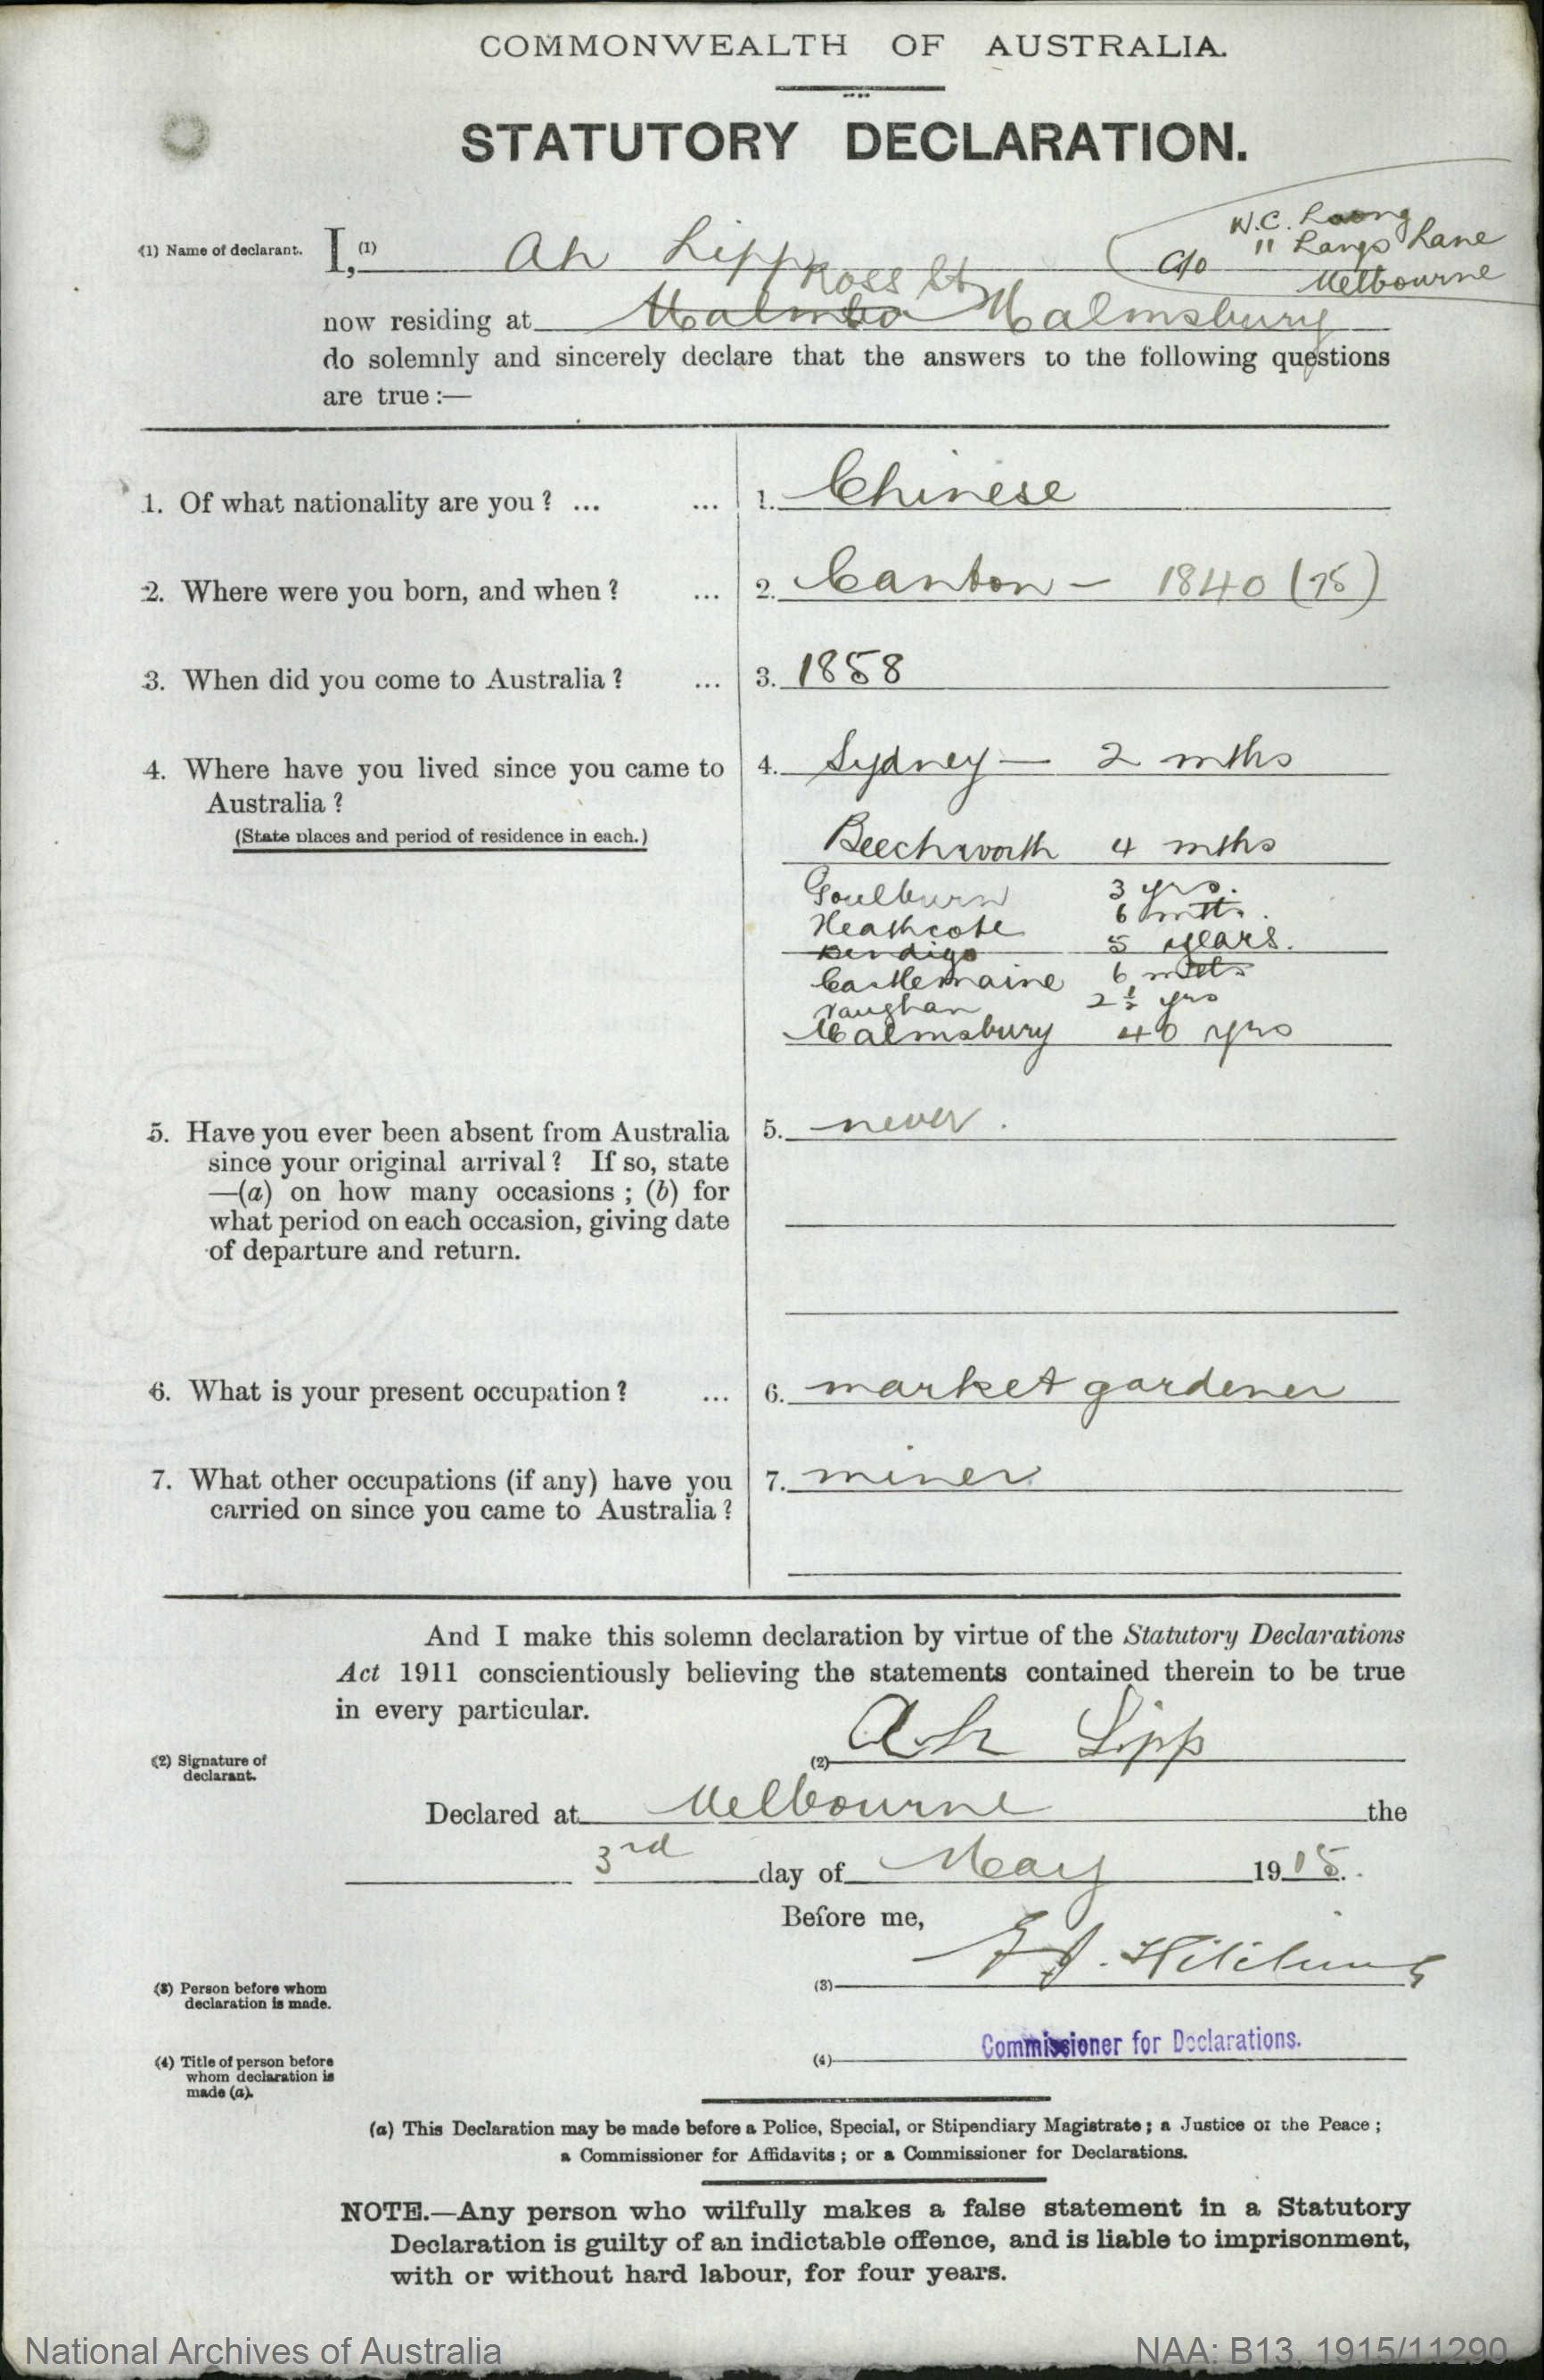 COMMONWEALTH OF AUSTRALIA.
STATUTORY DECLARATION.
W.C. Loong
c/o 11 Langs Lane
Melbourne
(1) Name of declarant. I, (1) Ah Lipp
Ross St
now residing at Malmbo Malmsbury
do solemnly and sincerely declare that the answers to the following questions
are true:—
1. Of what nationality are you? ... ... 1. Chinese
2. Where were you born, and when? ... 2. Canton - 1840 (75)
3. When did you come to Australia? ... 3. 1858
4. Where have you lived since you came to 4. Sydney - 2 mths
Australia?
(State places and period of residence in each.)
Beechworth 4 mths
Goulburn 3 yrs.
Heathcote 6 mths.
Bendigo 5 years.
Castlemaine 6 mths
Vaughan 2½ yrs
Malmsbury 40 yrs
5. Have you ever been absent from Australia 5. never.
since your original arrival? If so, state
—(a) on how many occasions; (b) for
what period on each occasion, giving date
of departure and return.
6. What is your present occupation? ... 6. market gardener
7. What other occupations (if any) have you 7. miner
carried on since you came to Australia?
And I make this solemn declaration by virtue of the Statutory Declarations
Act 1911 conscientiously believing the statements contained therein to be true
in every particular.
(2) Signature of declarant. (2) Ah Lipp
Declared at Melbourne the
3rd day of May 1915.
Before me,
(3) Person before whom declaration is made. (3)
(4) Title of person before whom declaration is made (a). (4) Commissioner for Declarations.
(a) This Declaration may be made before a Police, Special, or Stipendiary Magistrate; a Justice of the Peace;
a Commissioner for Affidavits; or a Commissioner for Declarations.
NOTE.—Any person who wilfully makes a false statement in a Statutory
Declaration is guilty of an indictable offence, and is liable to imprisonment,
with or without hard labour, for four years.
National Archives of Australia NAA: B13, 1915/11290